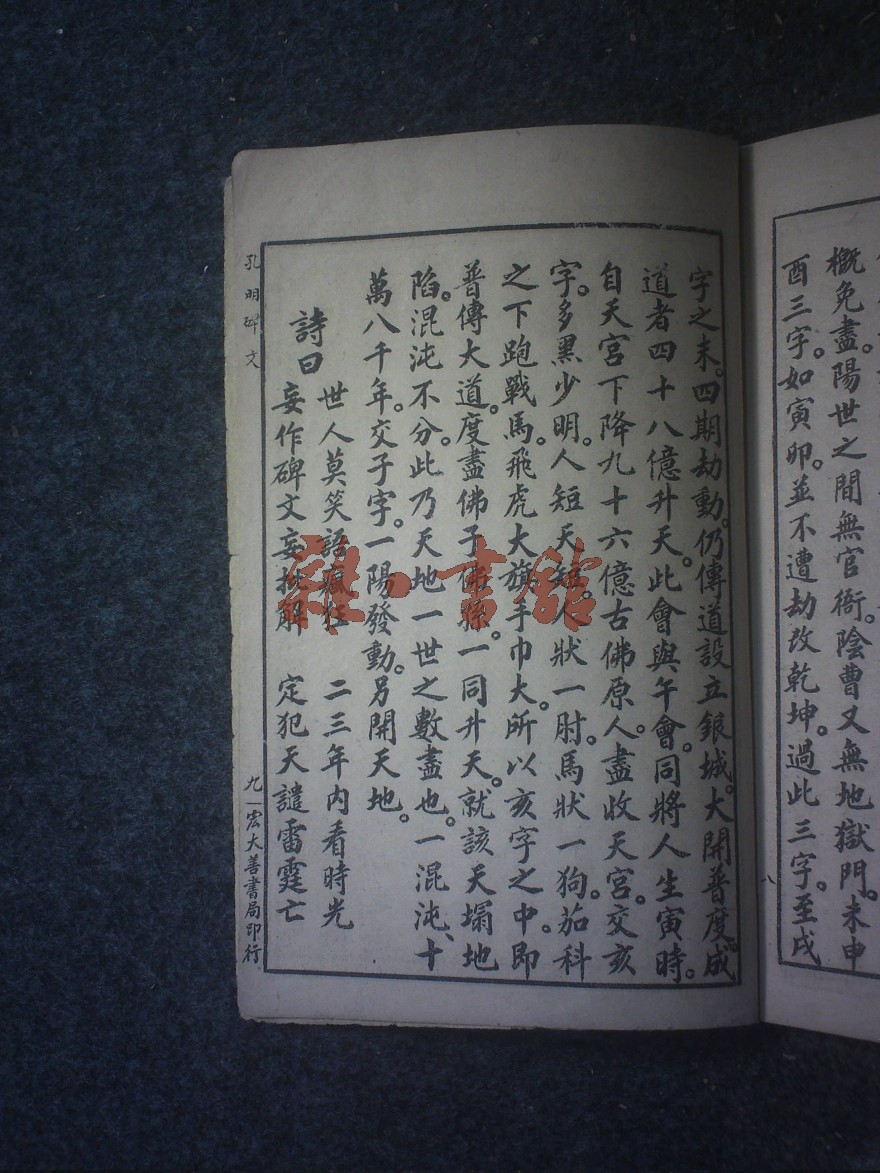 概免盡。陽世之間無官衙。陰曹又無地獄門。未申
酉三字。如寅卯。並不遭劫改乾坤。過此三字。至戌
八
字之末。四期劫動。仍傳道設立銀城。大開普度。成
道者四十八億升天。此會與午會。同將人生寅時。
自天宮下降九十六億古佛原人。盡收天宮。交亥
字。多黑少明。人短天短。人狀一肘。馬狀一狗。茄科
之下跑戰馬。飛虎大旗手巾大。所以亥字之中。即
普傳大道。度盡佛子佛孫。一同升天。就該天塌地
陷。混沌不分。此乃天地一世之數盡也。一混沌、十
萬八千年。交子字。一陽發動。另開天地。
詩曰
世人莫笑語瘋狂 二三年內看時光
妄作碑文妄批解 定犯天譴雷霆亡
孔明碑文
九 宏大善書局印行
雜·書館